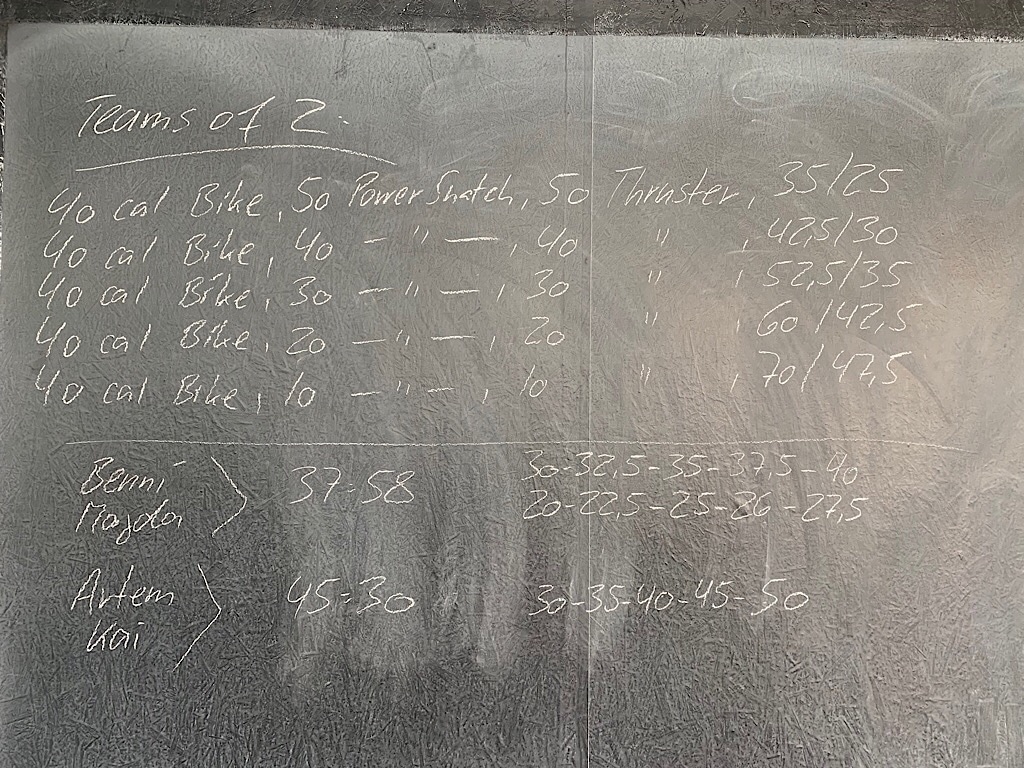 Teams of 2:
40 cal Bike, 50 Power Snatch, 50 Thruster, 35/25
40 cal Bike, 40 — " —, 40 " , 42,5/30
40 cal Bike, 30 — " —, 30 " , 52,5/35
40 cal Bike, 20 — " —, 20 " , 60/42,5
40 cal Bike, 10 — " —, 10 " , 70/47,5
Benni 37:58 30-32,5-35-37,5-40
Magda 20-22,5-25-26-27,5
Artem 45:30 30-35-40-45-50
Kai